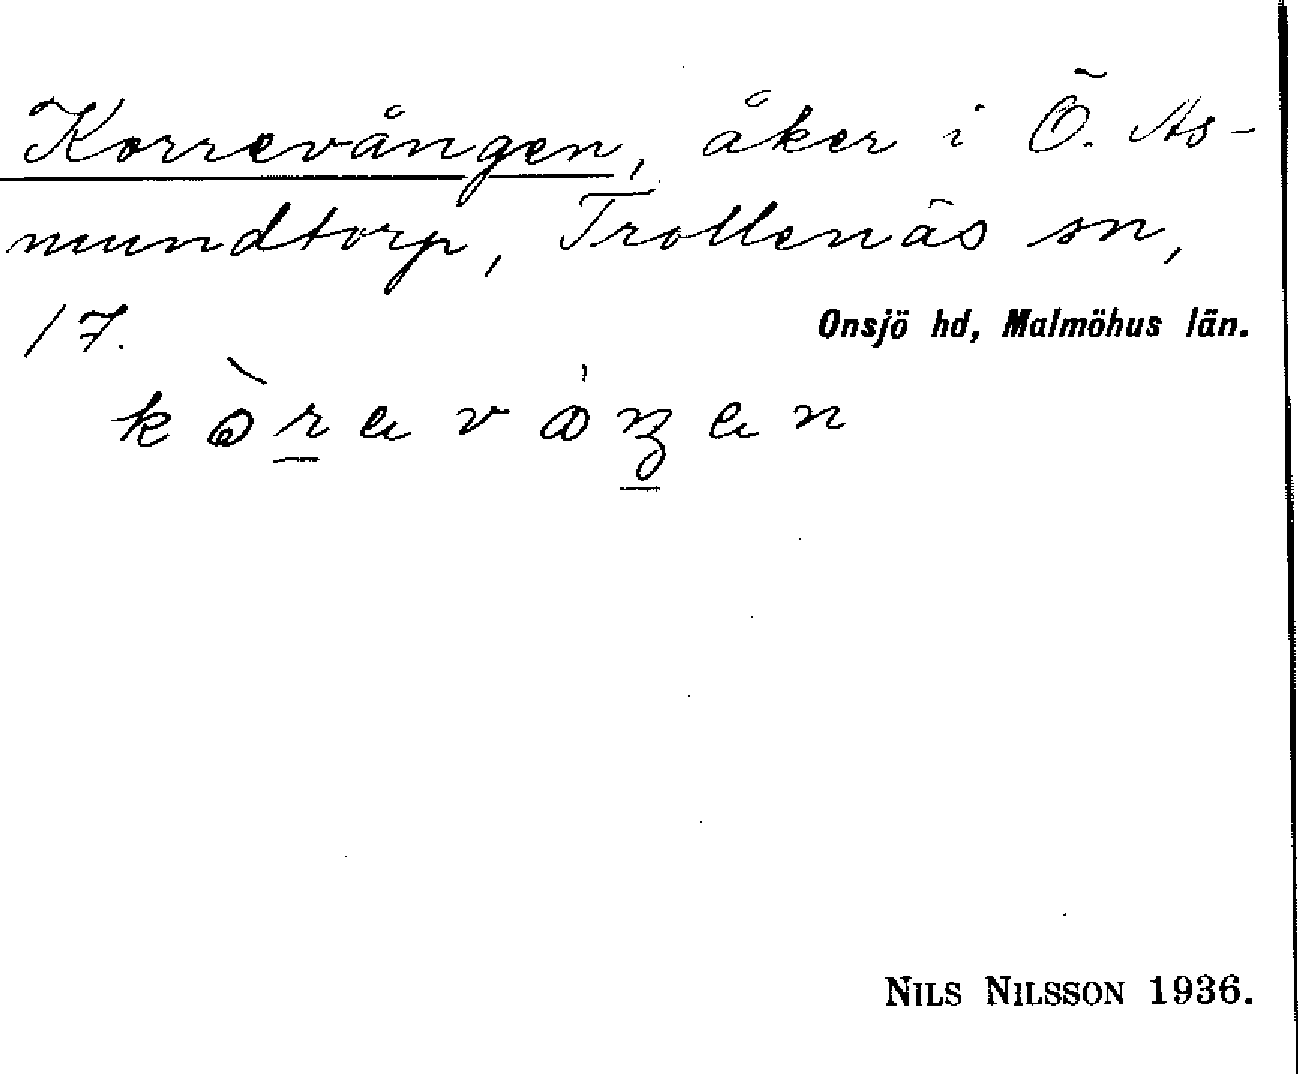 Korrevången, åker i Ö. As-
mundtorp, Trollenäs sn,
17.
Onsjö hd, Malmöhus län.
NILS NILSSON 1936.